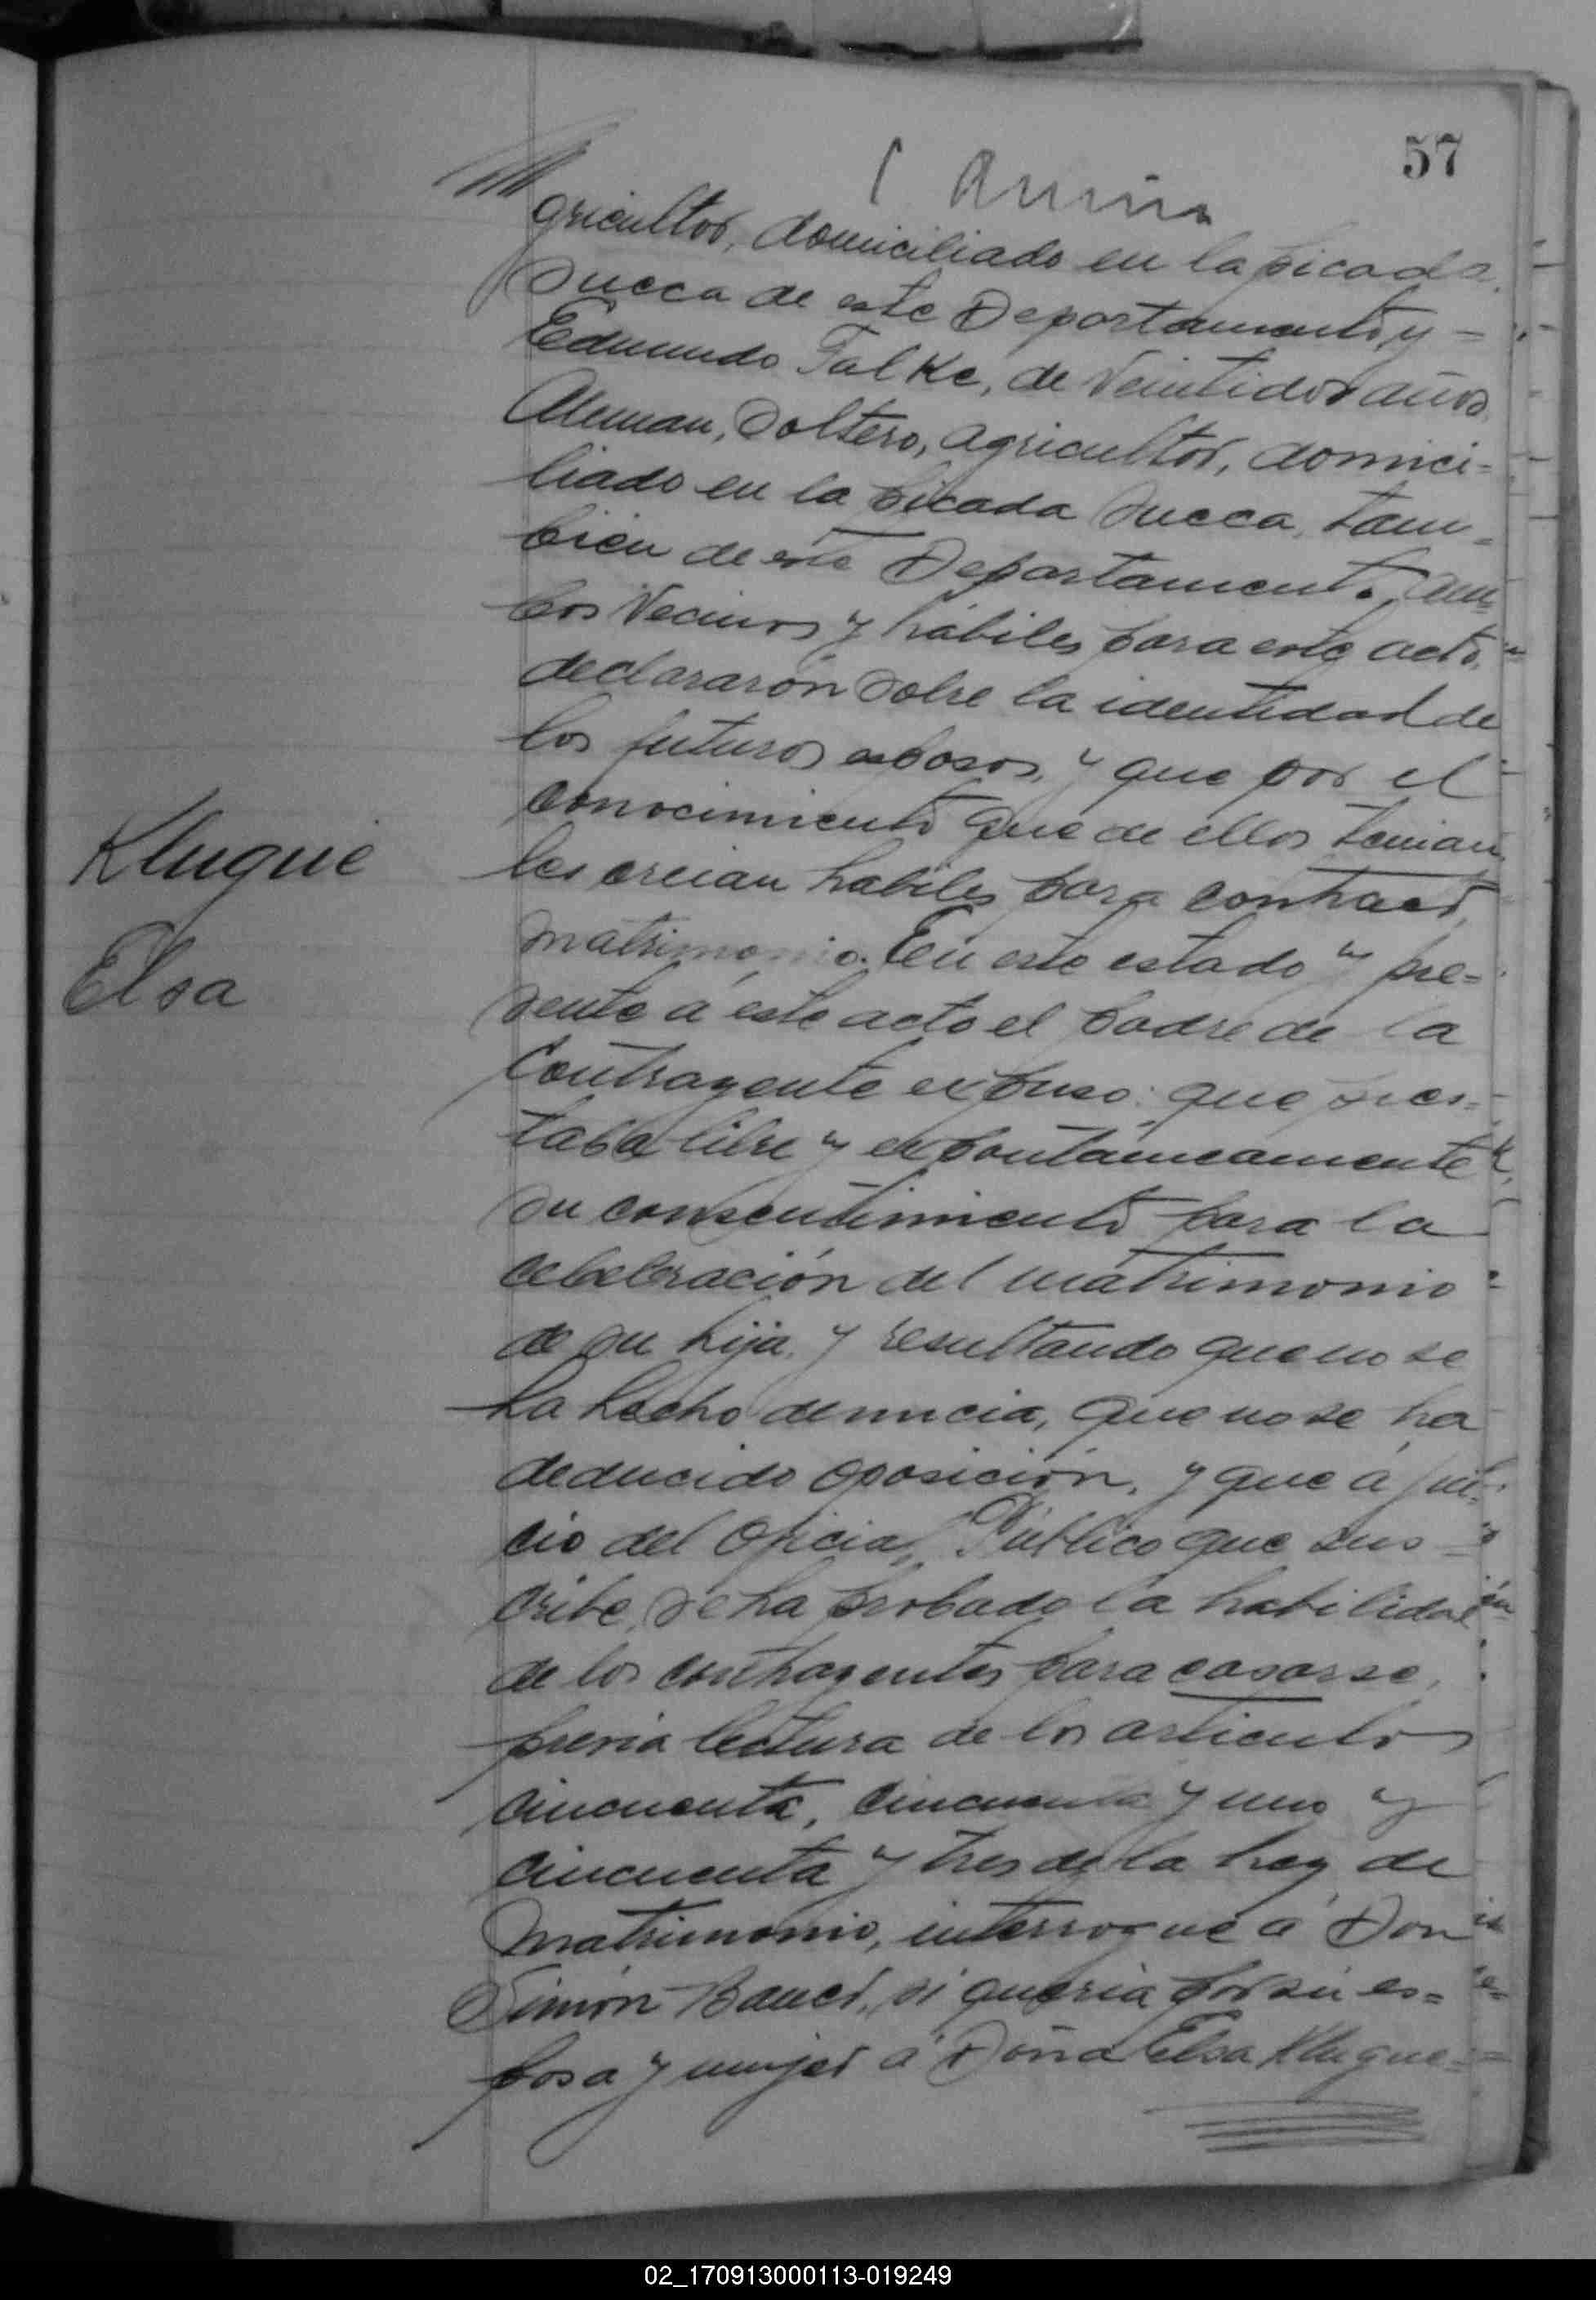 57
gricultor, domiciliado en la picada
Sueca de este Departamento, y =
Edmundo Falke, de Veintidos años
Aleman, Soltero, agricultor, domici=
liado en la picada Sueca, tam=
bien de este Departamento, Am=
bos Vecinos y hábiles para este acto,
declararón sobre la identidad de
los futuros esposos, y que por el
conocimiento que de ellos tenian
les creian habiles para contraer
Kluque
matrimonio. En este estado y pre=
Elsa
sente á este acto el padre de la
contrayente expuso: que pres=
taba libre y expontáneamente
su consentimiento para la
celebración del matrimonio
de su hija. y resultando que no se
ha hecho denuncia, que no se ha
deducido oposición, y que á jui=
cio del Oficial Público que sus=
cribe, se ha probado la habilidad
de los contrayentes para casarse,
previa lectura de los articulos
cincuenta, cincuenta y uno y
cincuenta y tres de la ley de
Matrimonio, interrogué á Don
Simón Bauer, si queria por su es=
posa y mujer á Doña Elsa Kluque=
02_170913000113-019249